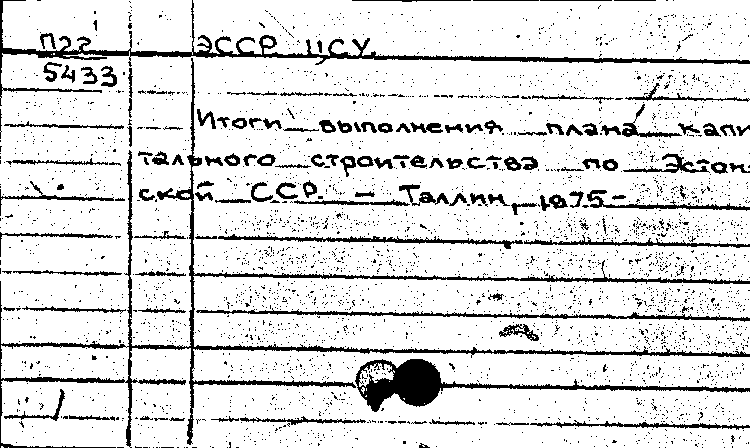 П22 ЭССР ЦСУ.
5433
Итоги выполнения плана капи
тального строительства по Эстон
ской ССР. – Таллин, 1975-